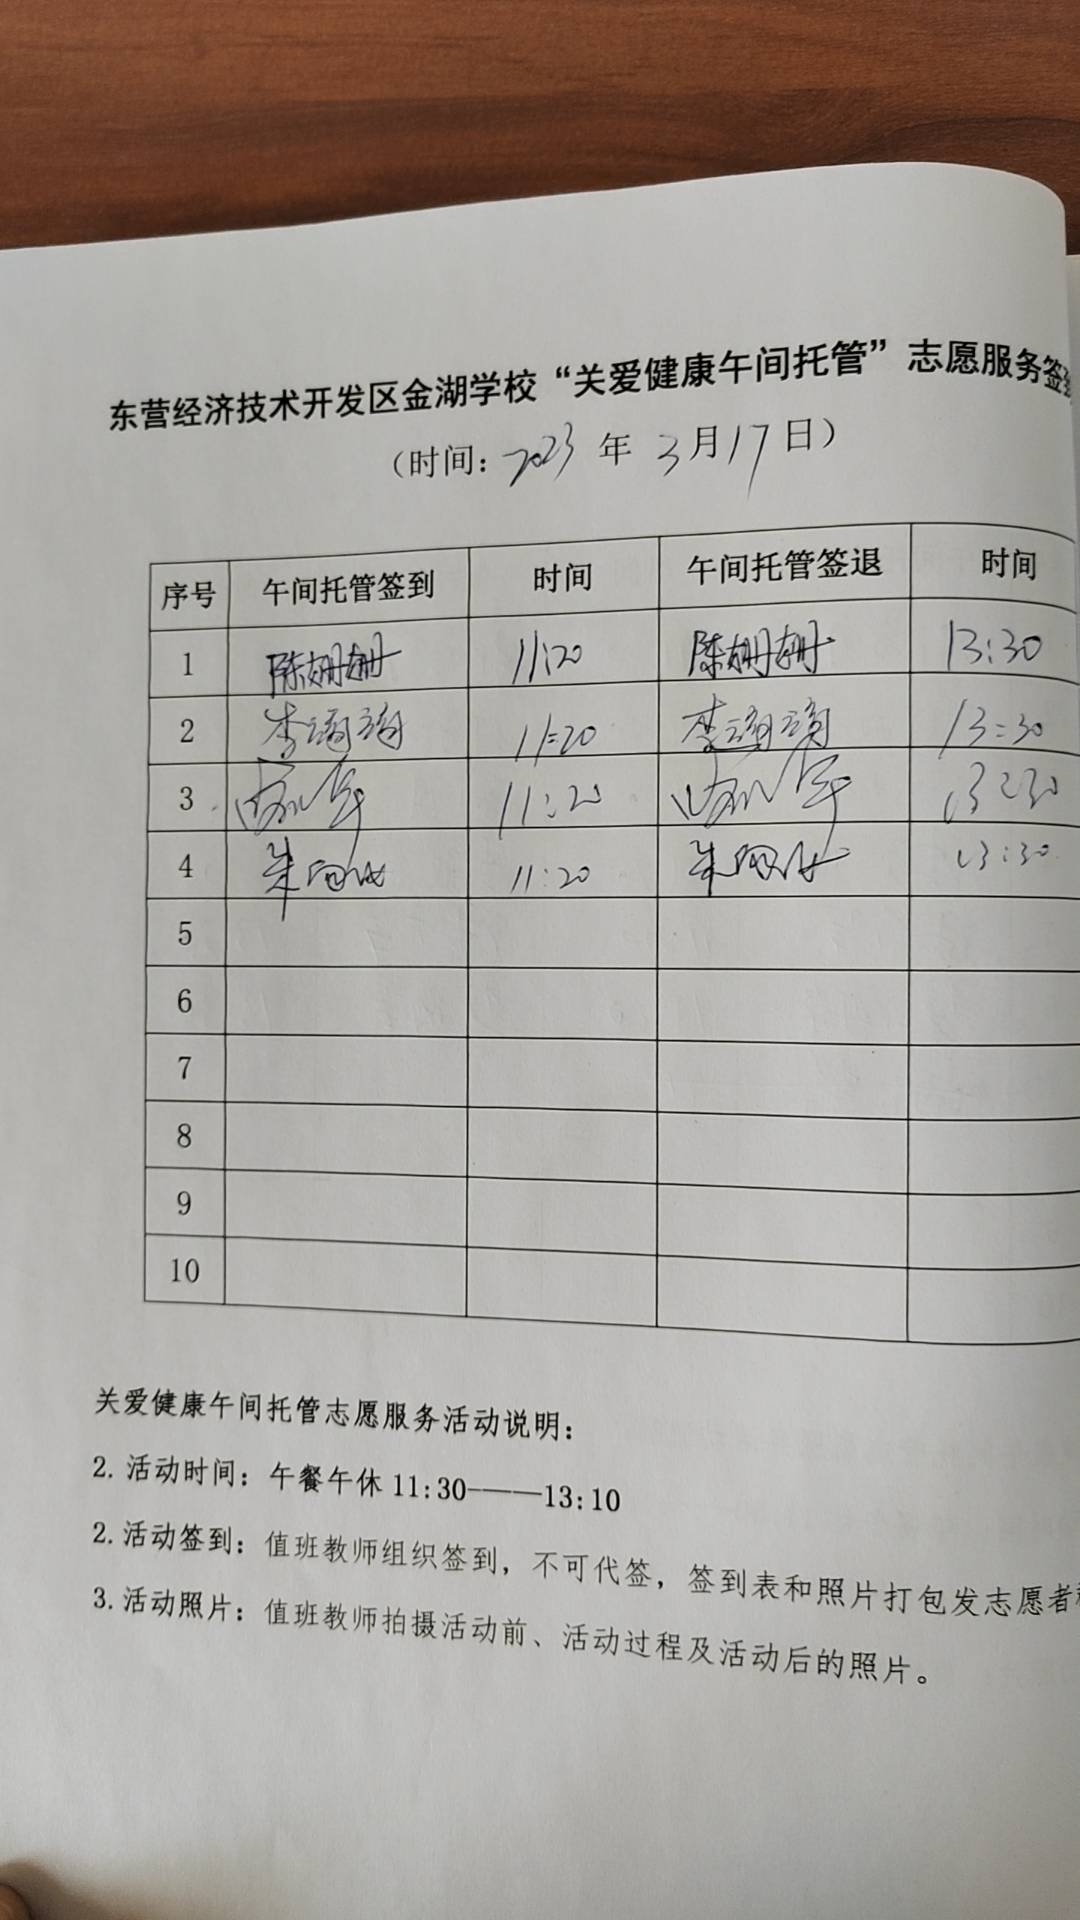 东营经济技术开发区金湖学校“关爱健康午间托管”志愿服务签
（时间：2023年3月17日）
序号 午间托管签到 时间 午间托管签退 时间
1 陈姗姗 11:20 陈姗姗 13:30
2 李 11:20 李 13:30
3 11:20 13:30
4 朱 11:20 朱 13:30
5
6
7
8
9
10
关爱健康午间托管志愿服务活动说明：
2. 活动时间：午餐午休 11:30——13:10
2. 活动签到：值班教师组织签到，不可代签，签到表和照片打包发志愿者
3. 活动照片：值班教师拍摄活动前、活动过程及活动后的照片。